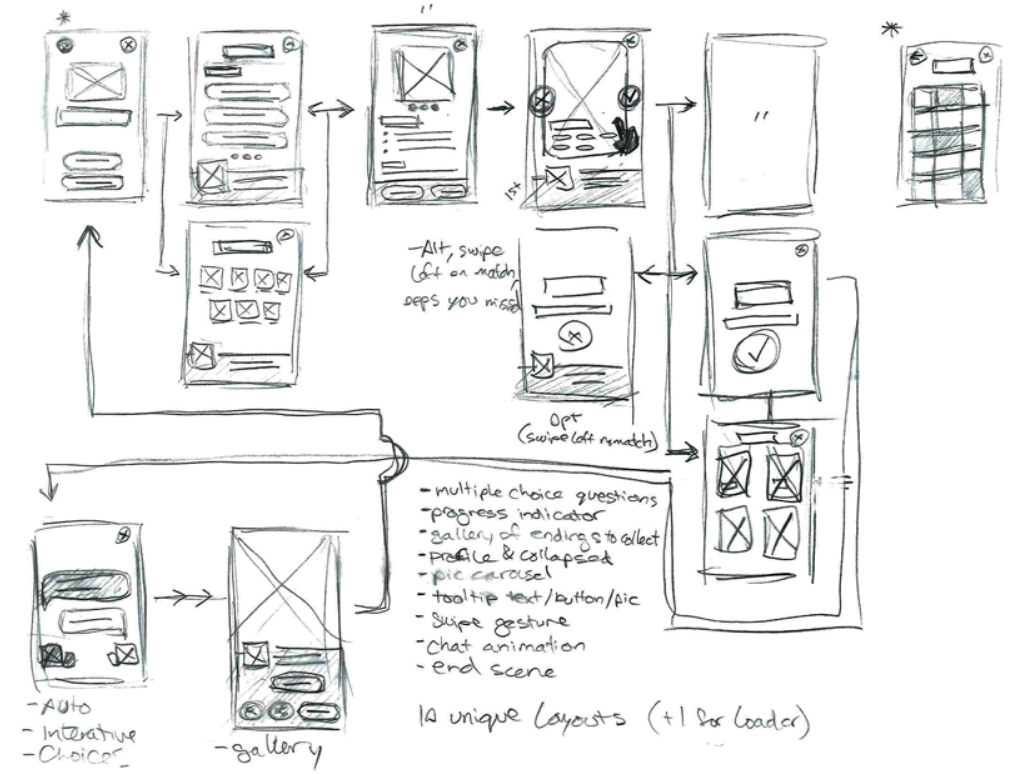 *
"
*
"
1st
- Alt, swipe
left on match,
oops you missed
Opt
(swipe left no match)
- multiple choice questions
- progress indicator
- gallery of endings to collect
- profile & collapsed
- pic carousel
- tooltip text/button/pic
- swipe gesture
- chat animation
- end scene
- Auto
- Interative
- gallery
unique Layouts (+1 for Loader)